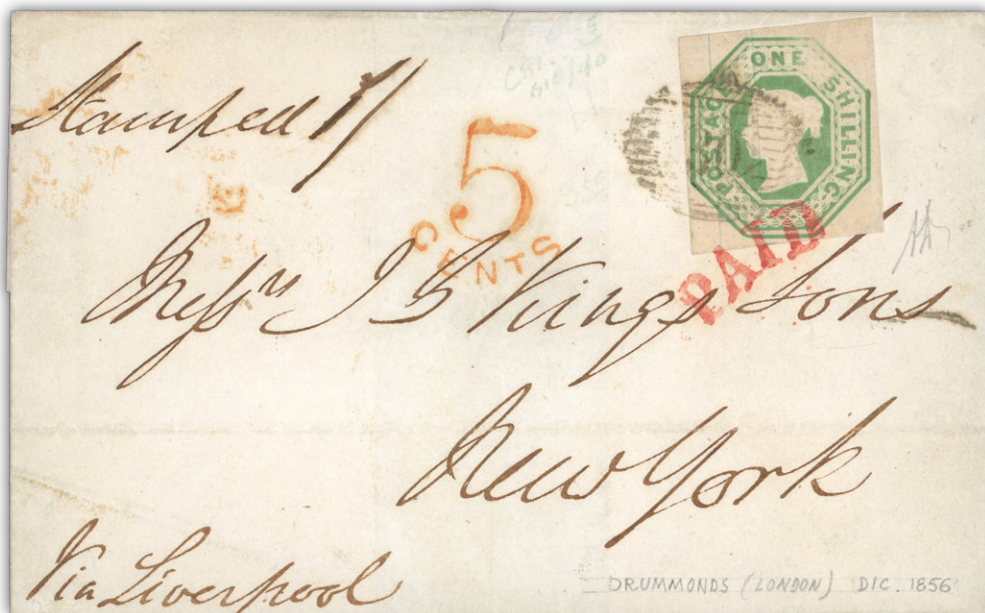 Stamped 1/
5
CENTS
POSTAGE ONE SHILLING
PAID
Messrs J B Kings Sons
New York
Via Liverpool
DRUMMONDS (LONDON) DIC. 1856